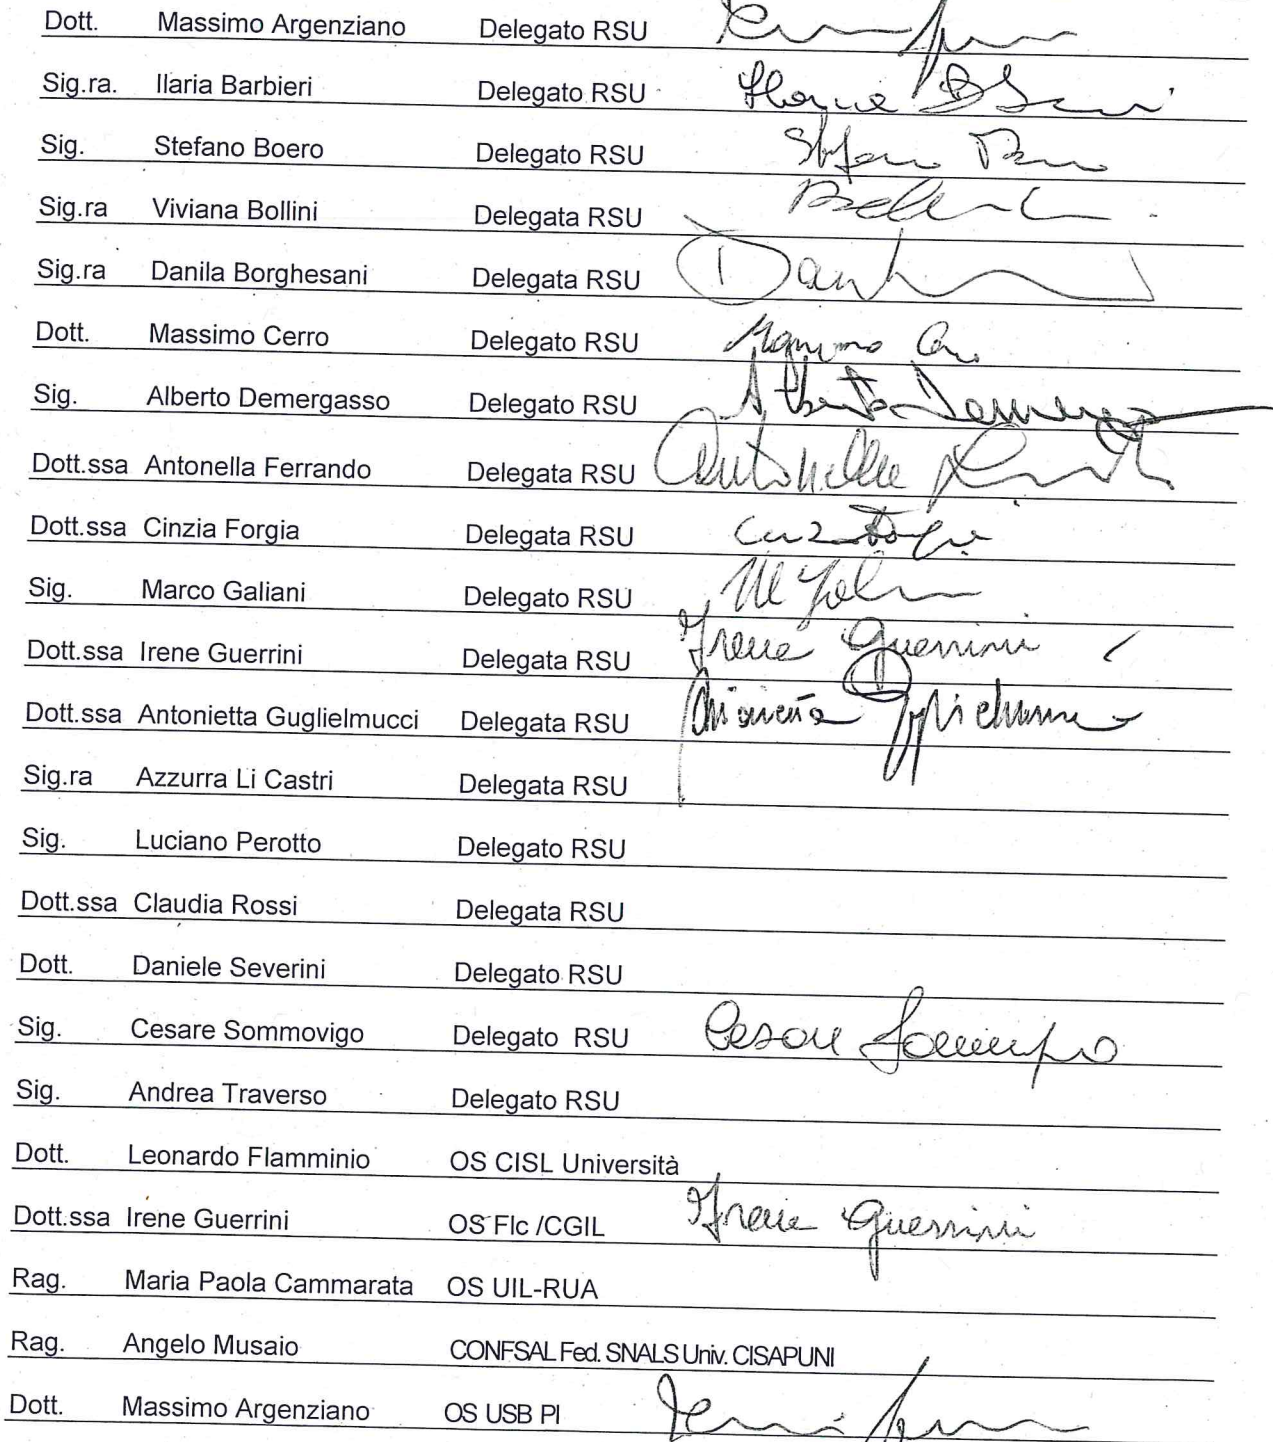 Dott. Massimo Argenziano Delegato RSU
Sig.ra. Ilaria Barbieri Delegato RSU
Sig. Stefano Boero Delegato RSU Stefano
Sig.ra Viviana Bollini Delegata RSU
Sig.ra Danila Borghesani Delegata RSU
Dott. Massimo Cerro Delegato RSU
Sig. Alberto Demergasso Delegato RSU Alberto
Dott.ssa Antonella Ferrando Delegata RSU Antonella
Dott.ssa Cinzia Forgia Delegata RSU
Sig. Marco Galiani Delegato RSU
Dott.ssa Irene Guerrini Delegata RSU Irene Guerrini
Dott.ssa Antonietta Guglielmucci Delegata RSU
Sig.ra Azzurra Li Castri Delegata RSU
Sig. Luciano Perotto Delegato RSU
Dott.ssa Claudia Rossi Delegata RSU
Dott. Daniele Severini Delegato RSU
Sig. Cesare Sommovigo Delegato RSU Cesare
Sig. Andrea Traverso Delegato RSU
Dott. Leonardo Flamminio OS CISL Università
Dott.ssa Irene Guerrini OS Flc /CGIL Irene Guerrini
Rag. Maria Paola Cammarata OS UIL-RUA
Rag. Angelo Musaio CONFSAL Fed. SNALS Univ. CISAPUNI
Dott. Massimo Argenziano OS USB PI